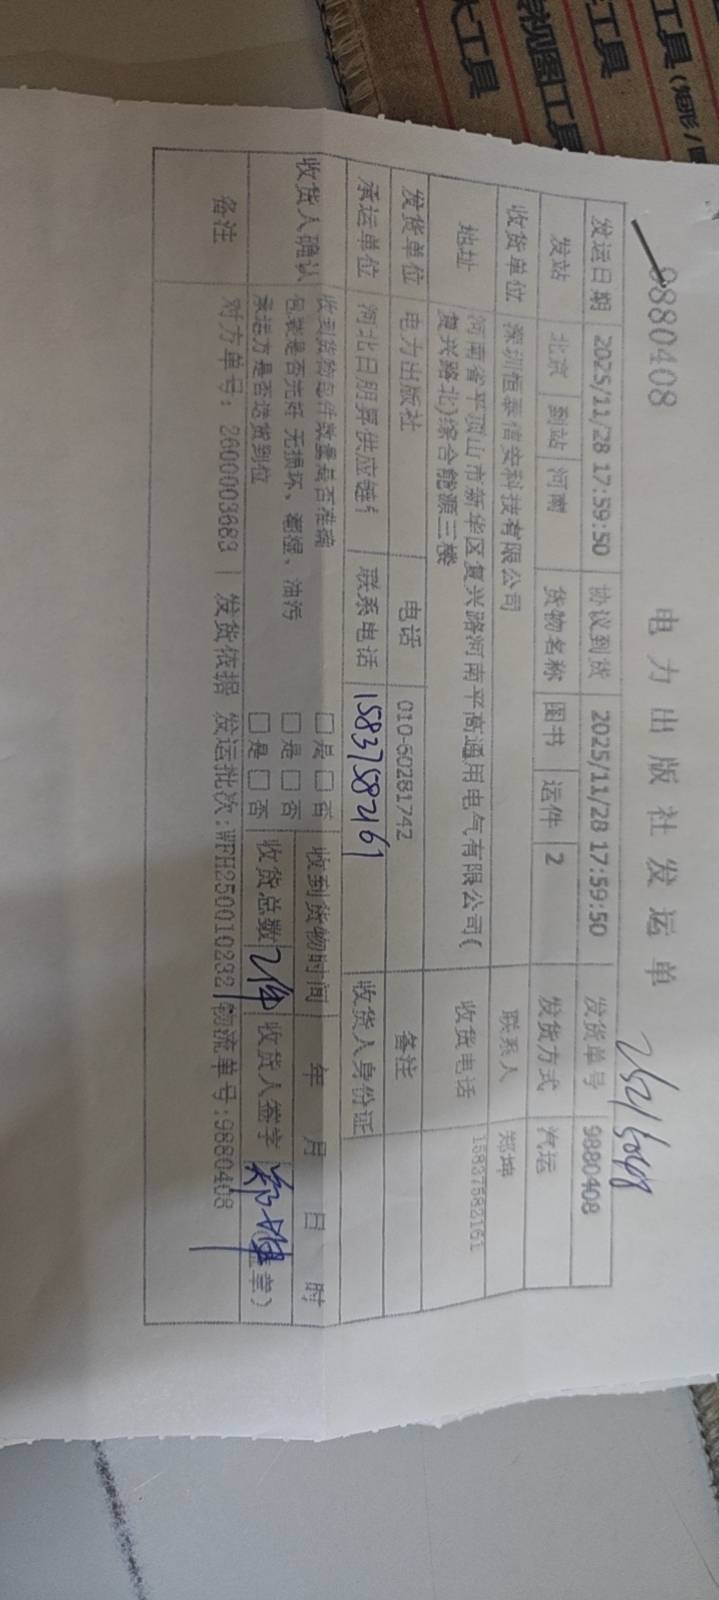 大工具
学视图工具
工具
工具(矩形/圆
9880408
电力出版社发运单
发运日期 2025/11/28 17:59:50 协议到货 2025/11/28 17:59:50 发货单号 9880408
发站 北京 到站 河南 货物名称 图书 运件 2 发货方式 汽运
收货单位 深圳恒泰信安科技有限公司 联系人 郑坤
地址 河南省平顶山市新华区复兴路河南平高通用电气有限公司(
复兴路北)综合能源三楼 收货电话 15837582161
发货单位 电力出版社 电话 010-60281742 备注
承运单位 河北日朋昇供应链 联系电话 15837582161 收货人身份证
收货人确认 收到货物包件数量是否准确 □是□否 收到货物时间 年 月 日 时
包装是否完好 无损坏、潮湿、油污 □是□否
承运方是否送货到位 □是□否 收货总数 2件 收货人签字 章)
备注 对方单号: 2600003683 | 发货依据 发运批次:WFH250010232|物流单号:9880408